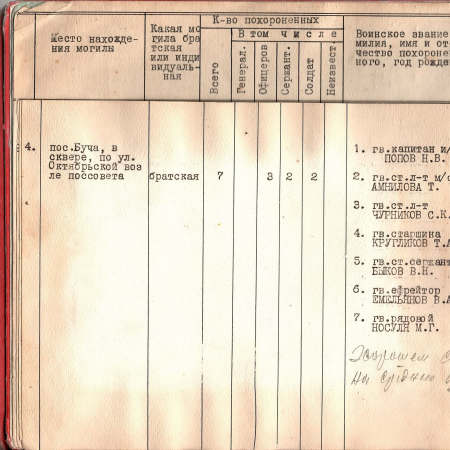 Место нахожде-
ния могилы
Какая мо
гила бра
тская
или инди
видуаль-
ная
К-во похороненных
В том числе
Всего
Генерал.
Офицеров
Сержант.
Солдат
Неизвест.
Воинское звание
милия, имя и от
чество похороне
ного, год рожде
4. пос.Буча, в
сквере, по ул.
Октябрьской воз
ле поссовета
братская 7 3 2 2
1. гв.капитан и/
ПОПОВ Н.В.
2. гв.ст.л-т м/с
АМНИЛОВА Т.
3. гв.ст.л-т
ЧУРНИКОВ С.К.
4. гв.старшина
КРУГЛИКОВ Т.А
5. гв.ст.сержант
БЫКОВ В.Н.
6. гв.ефрейтор
ЕМЕЛЬЯНОВ В.А
7. гв.рядовой
НОСУЛЯ М.Г.
на